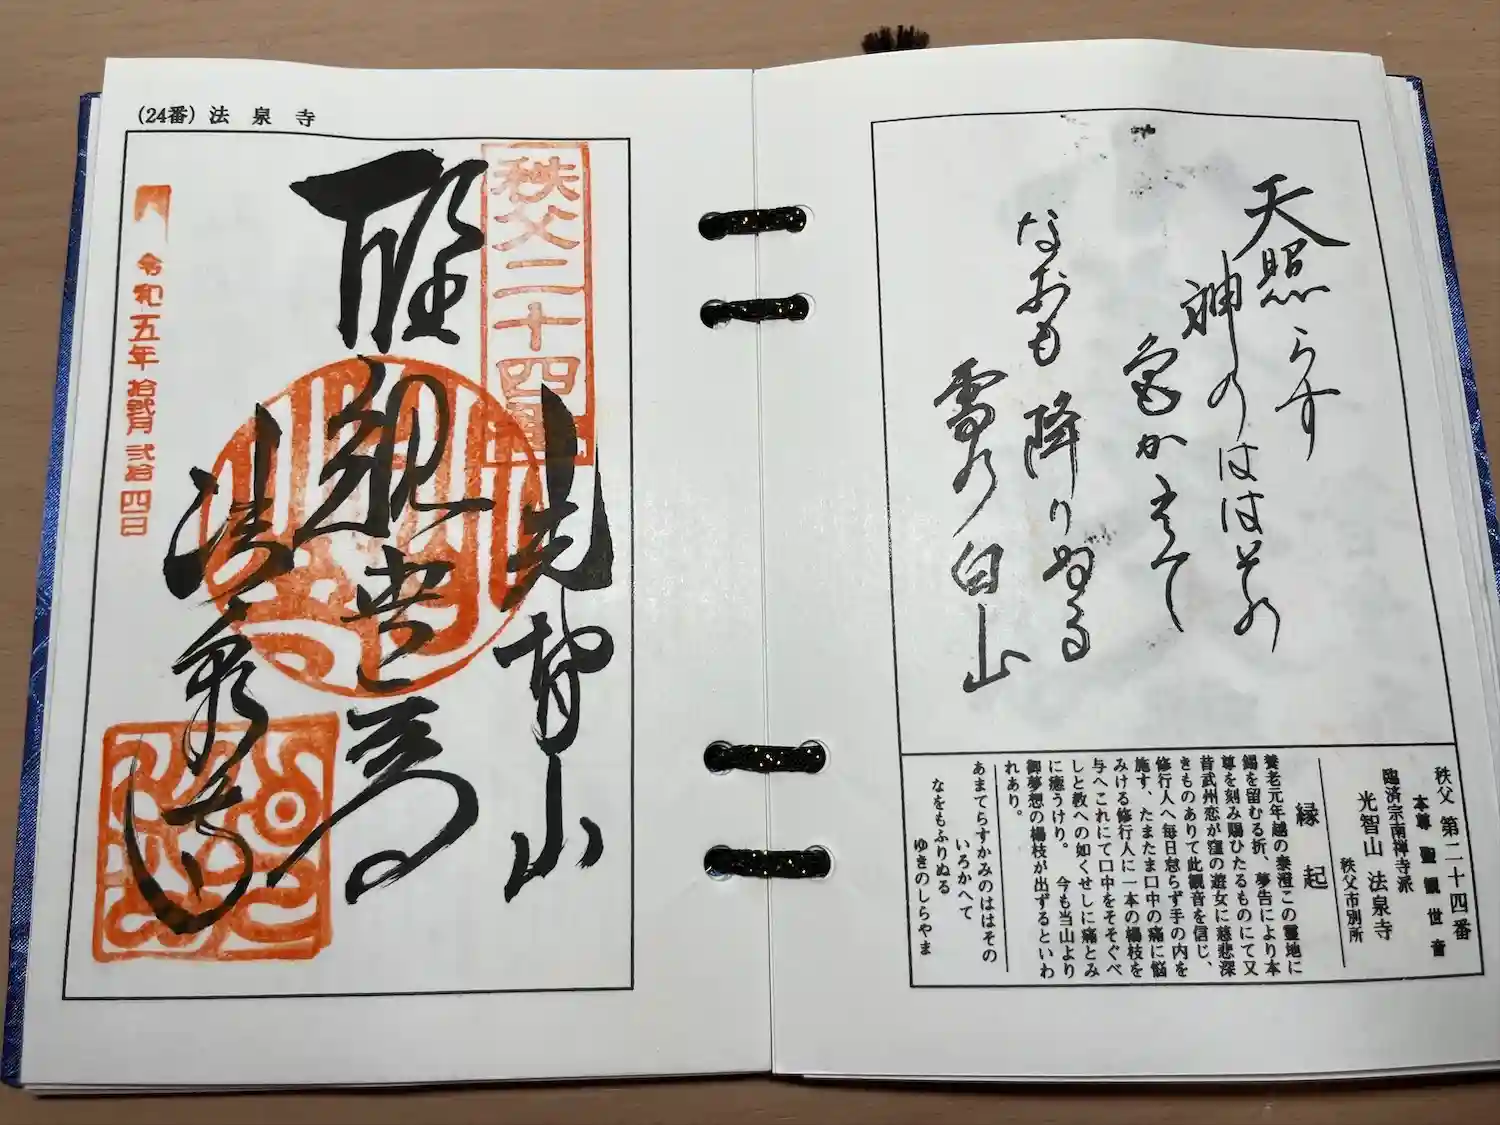 (24番) 法泉寺
秩父二十四番
光智山
聖観世音
法泉寺
令和五年 拾弐月 弐拾四日
天照らす
神のははその
色かえて
なおも降りぬる
雪の白山
秩父 第二十四番
本尊 聖観世音
臨済宗南禅寺派
光智山 法泉寺
秩父市別所
縁起
養老元年越の泰澄この霊地に
錫を留むる折、夢告により本
尊を刻み賜ひたるものにて又
昔武州恋が窪の遊女に慈悲深
きものありて此観音を信じ、
修行人へ毎日怠らず手の内を
施す、たまたま口中の痛に悩
みける修行人に一本の楊枝を
与へこれにて口中をそそぐべ
しと教への如くせしに痛とみ
に癒うけり。 今も当山より
御夢想の楊枝が出ずるといわ
れあり。
あまてらすかみのははその
いろかへて
なをもふりぬる
ゆきのしらやま